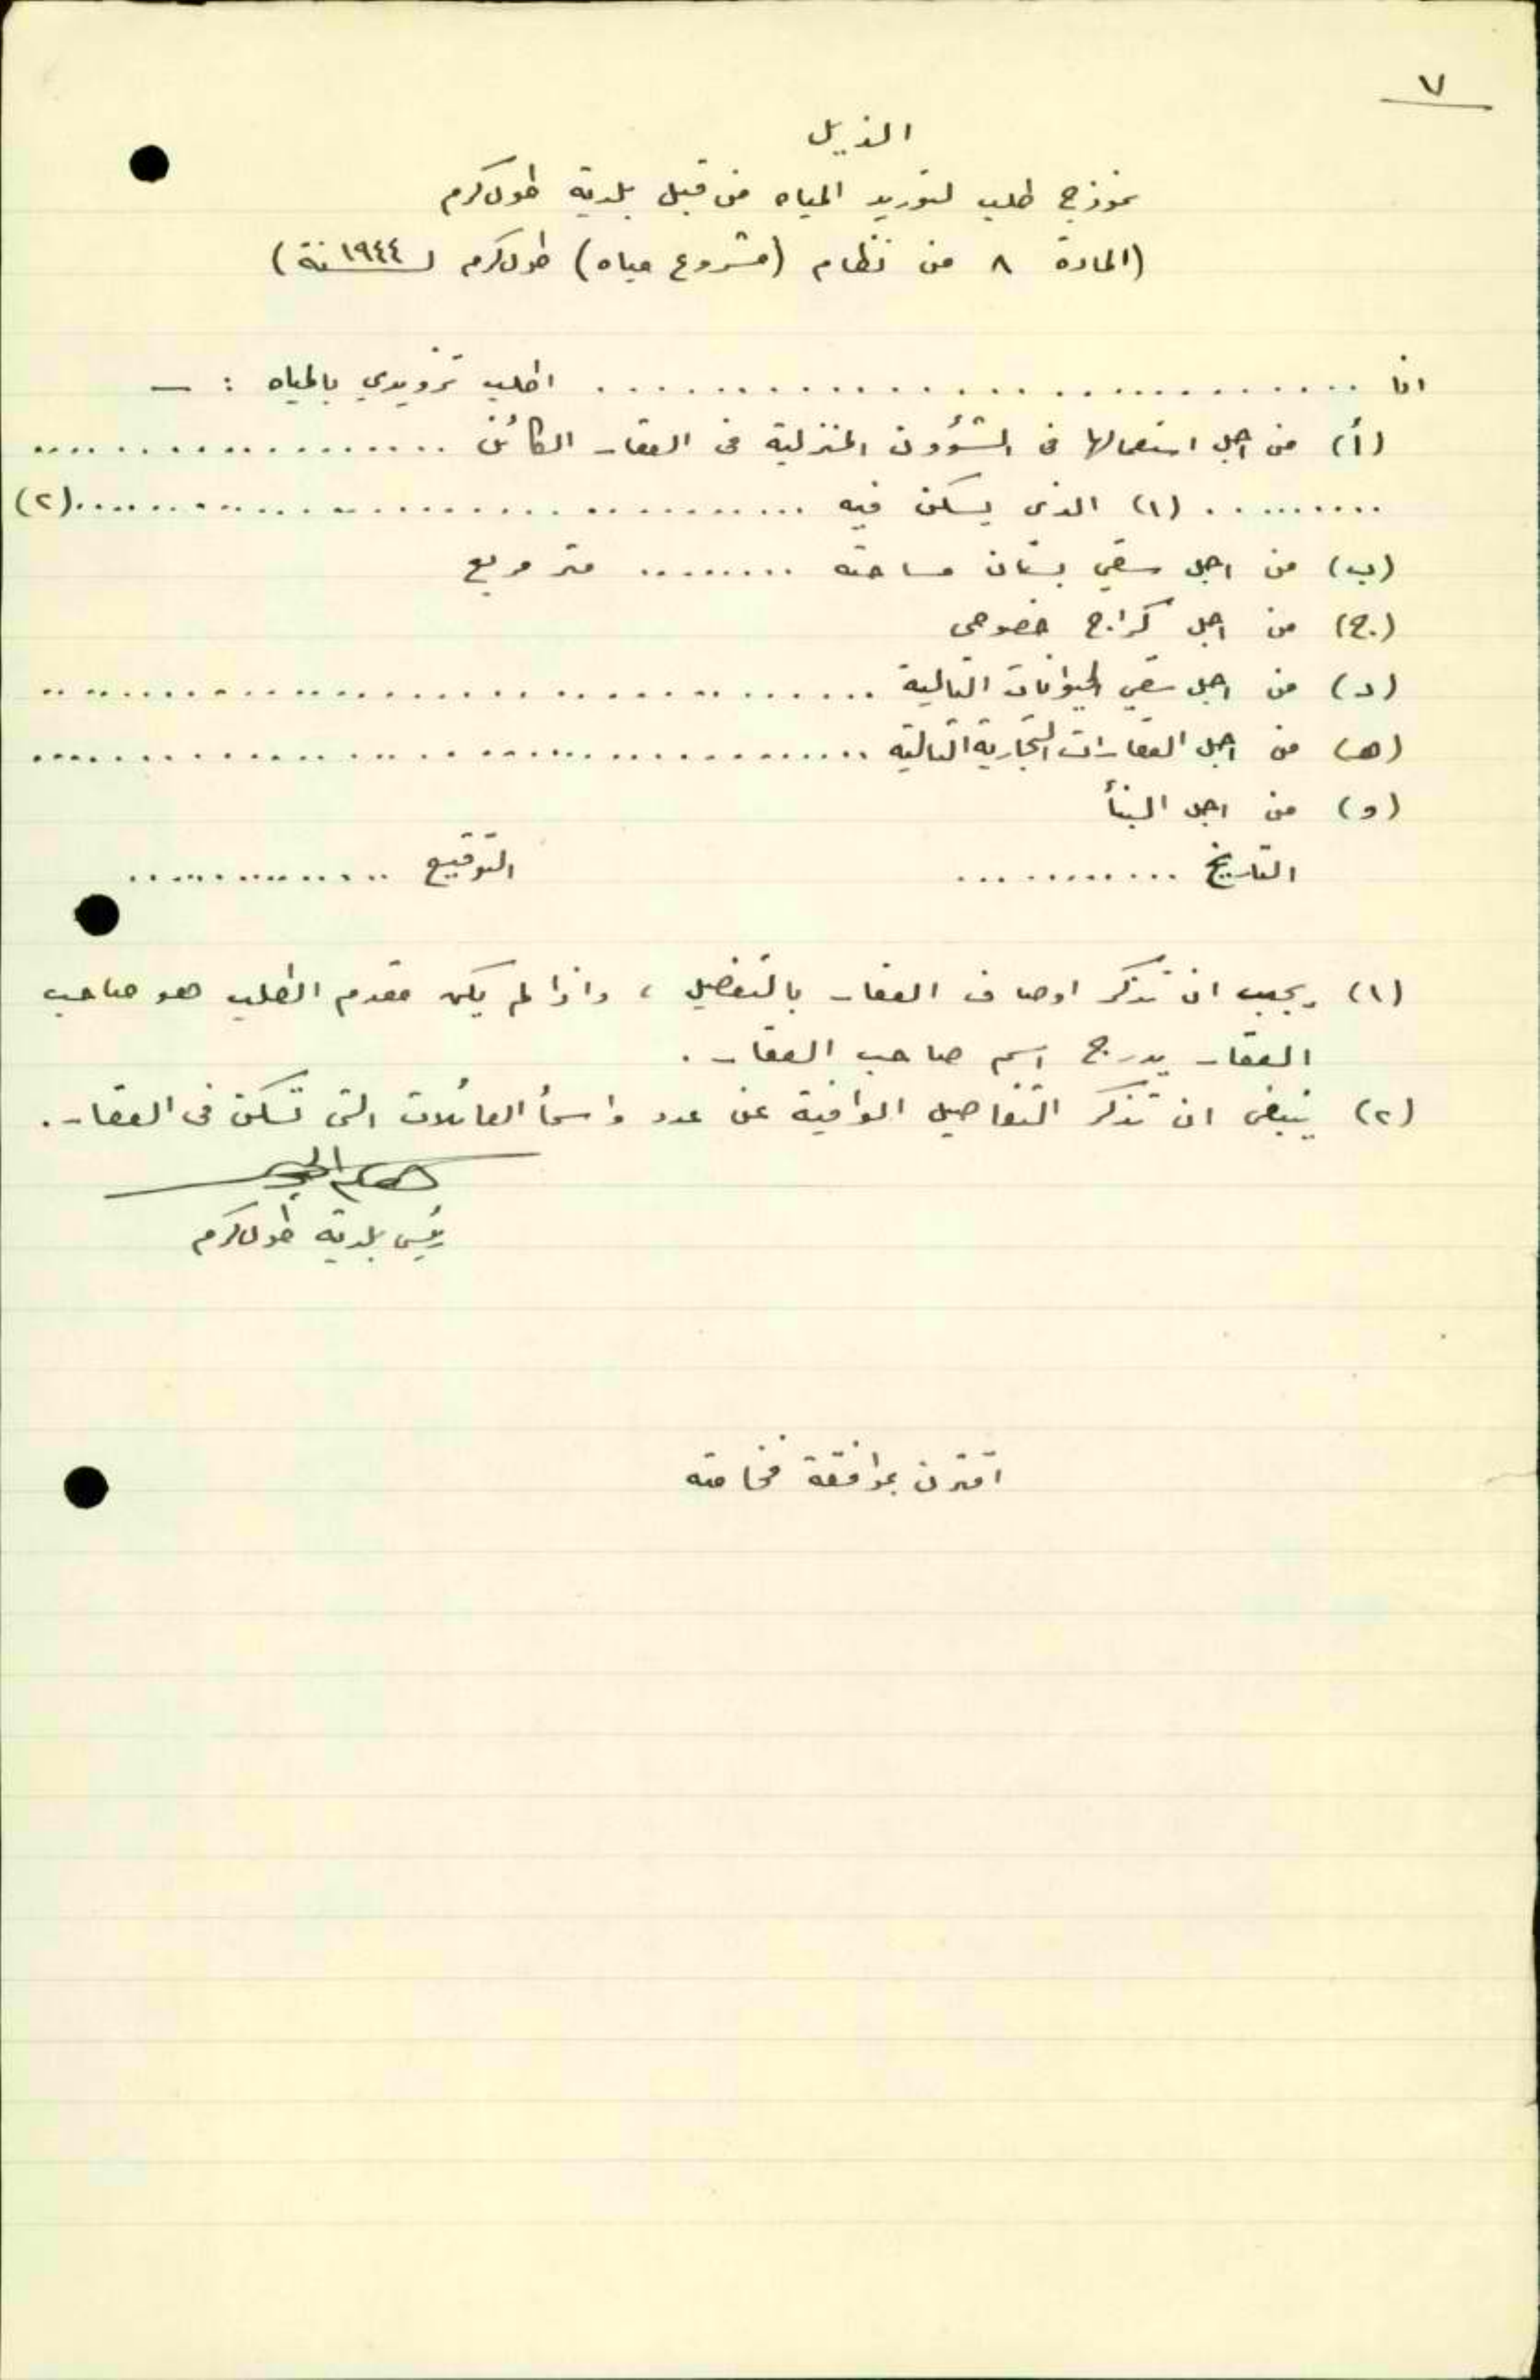 ٧
الذيل
نموذج طلب لتوريد المياه من قبل بلدية طولكرم
(المادة ٨ من نظام (مشروع مياه) طولكرم لسنة ١٩٤٤)
انا .............................. اطلب تزويدي بالمياه : ـ
(أ) من اجل استعمالها في الشؤون المنزلية في العقار الكائن ..................
.......... (١) الذي يسكن فيه ..............................(٢)
(ب) من اجل سقي بستان مساحته ......... متر مربع
(ج) من اجل كراج خصوصي
(د) من اجل سقي الحيوانات التالية ..............................
(هـ) من اجل العقارات التجارية التالية ..............................
(و) من اجل البنأ
التاريخ ............ التوقيع ................
(١) يجب ان تذكر اوصاف العقار بالتفصيل ، واذا لم يكن مقدم الطلب هو صاحب
العقار يدرج اسم صاحب العقار .
(٢) ينبغي ان تذكر التفاصيل الوافية عن عدد واسمأ العائلات التي تسكن في العقار .
رئيس بلدية طولكرم
اقترن بموافقة فخامته